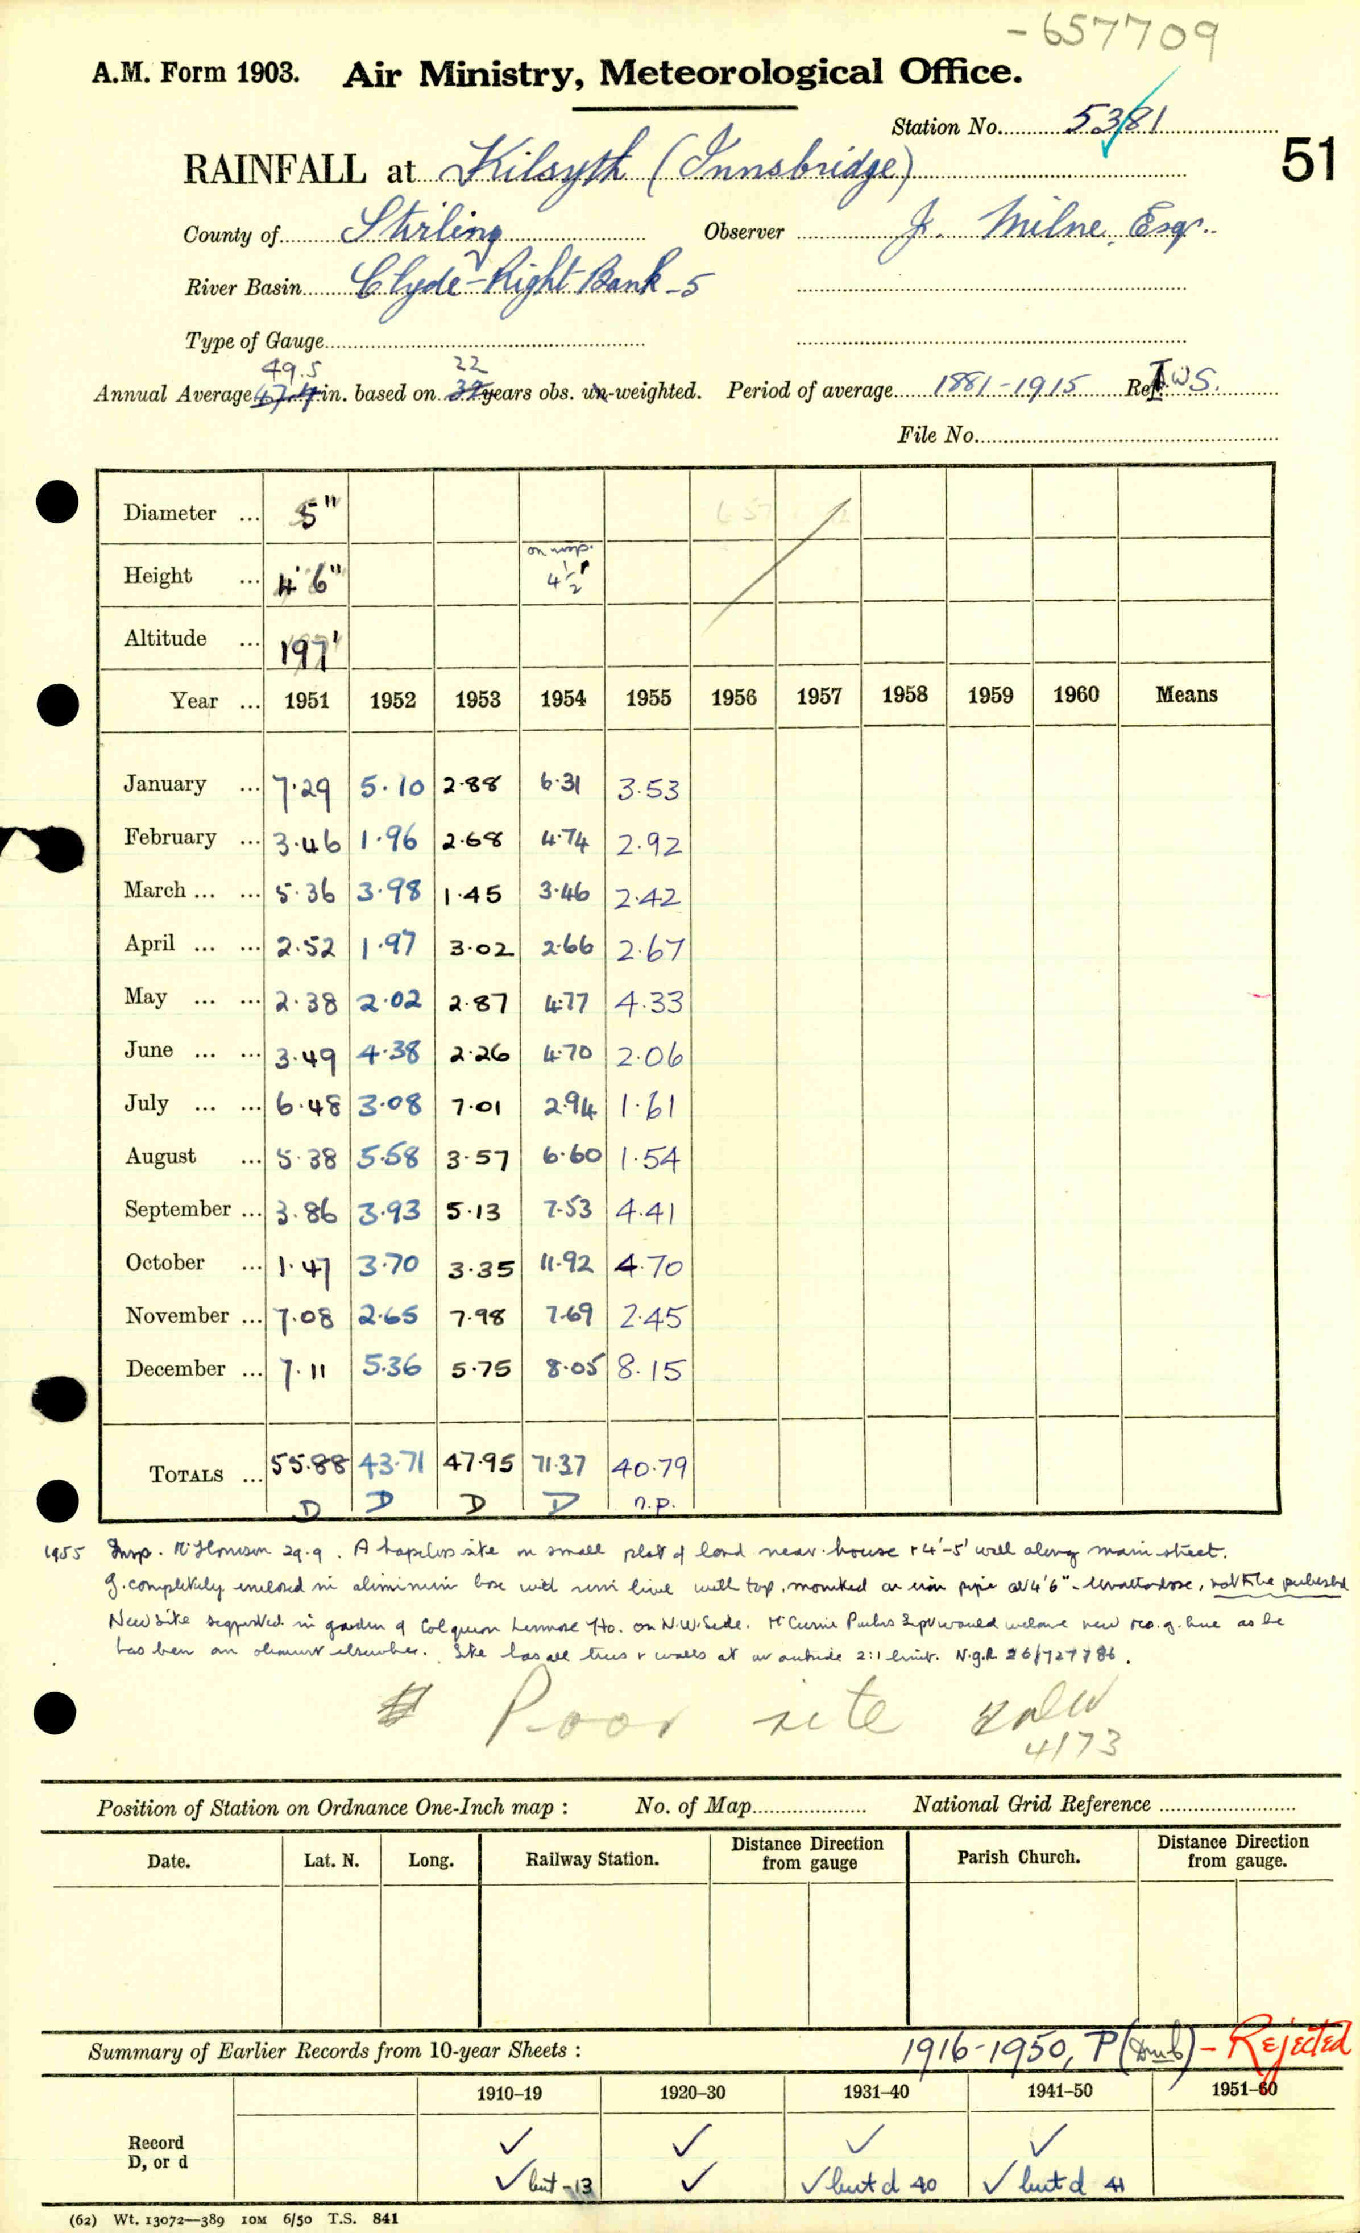 -657709
A.M. Form 1903. Air Ministry, Meteorological Office.
Station No. 5381
51
RAINFALL at Kilsyth (Innsbridge)
County of Stirling Observer J. Milne, Esqr.
River Basin Clyde-Right Bank-5
Type of Gauge
49.5 22
Annual Average 47.4 in. based on 32 years obs. un-weighted. Period of average 1881-1915 Ref. I.W.S.
File No.
Diameter ... 5"
on insp.
Height ... 4' 6" 4½'
Altitude ... 197'
Year ... 1951 1952 1953 1954 1955 1956 1957 1958 1959 1960 Means
January ... 7.29 5.10 2.88 6.31 3.53
February ... 3.46 1.96 2.68 4.74 2.92
March ... ... 5.36 3.98 1.45 3.46 2.42
April ... ... 2.52 1.97 3.02 2.66 2.67
May ... ... 2.38 2.02 2.87 4.77 4.33
June ... ... 3.49 4.38 2.26 4.70 2.06
July ... ... 6.48 3.08 7.01 2.94 1.61
August ... 5.38 5.58 3.57 6.60 1.54
September ... 3.86 3.93 5.13 7.53 4.41
October ... 1.47 3.70 3.35 11.92 4.70
November ... 7.08 2.65 7.98 7.69 2.45
December ... 7.11 5.36 5.75 8.05 8.15
TOTALS ... 55.88 43.71 47.95 71.37 40.79
D D D D n.p.
1955 Insp. 29.9. A hopeless site on small plot of land near house & 4'-5' wall along main street.
g. completely enclosed in aluminium box with rim live with top, mounted on iron pipe at 4'6" - not to be published
New site suggested in garden of Colquhoun Lennox Ho. on N.W. Side. Mr Currie Parks Supt would welcome new rec. g. here as he
has been an observer elsewhere. Site has all trees & walls at or outside 2:1 limit. N.g.R. 26/727786.
Poor site
4173
Position of Station on Ordnance One-Inch map : No. of Map National Grid Reference
Date. Lat. N. Long. Railway Station. Distance Direction from gauge Parish Church. Distance Direction from gauge.
Summary of Earlier Records from 10-year Sheets : 1916-1950, P (Dumb) - Rejected
1910-19 1920-30 1931-40 1941-50 1951-60
Record ✓ ✓ ✓ ✓
D, or d ✓ but -13 ✓ ✓ but d 40 ✓ but d 41
(62) Wt. 13072—389 10M 6/50 T.S. 841